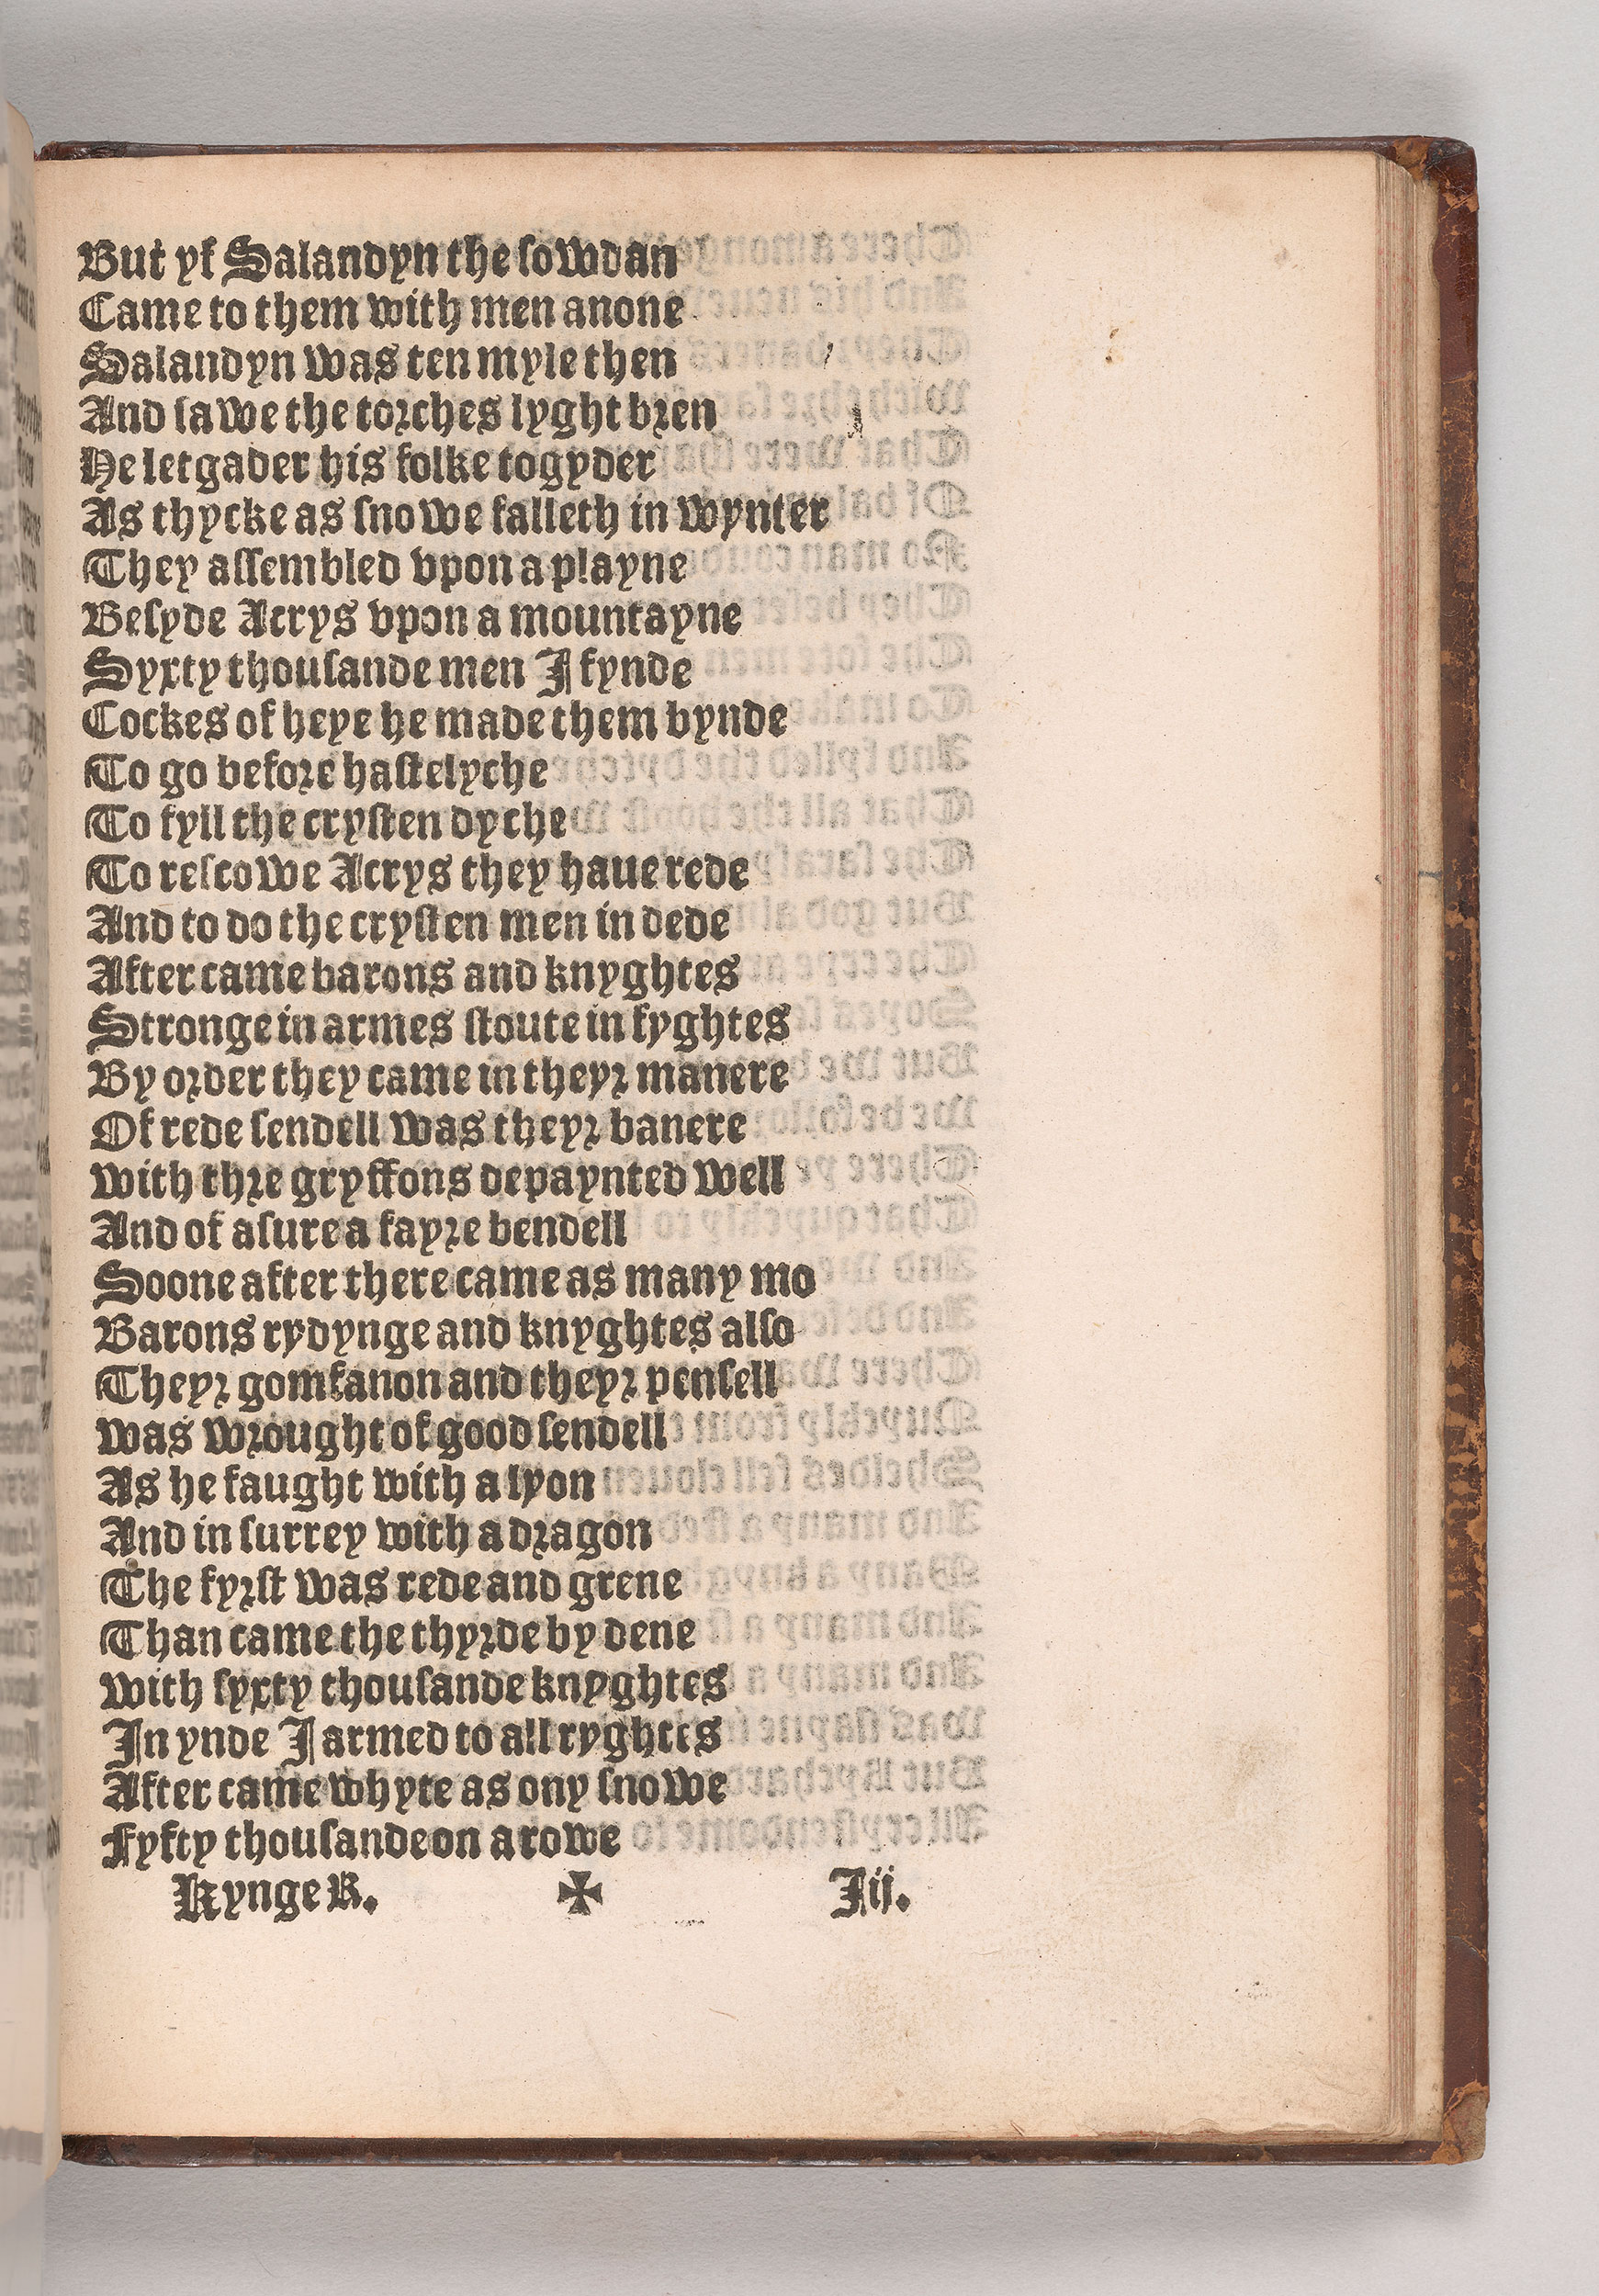 But yf Salandyn the ſowdan
Came to them with men anone
Salandyn was ten myle then
And ſawe the torches lyght bren
He let gader his folke togyder
As thycke as ſnowe falleth in wynter
They aſſembled vpon a playne
Beſyde Acrys vpon a mountayne
Syxty thouſande men I fynde
Cockes of heye he made them bynde
To go before haſtelyche
To fyll the cryſten dyche
To reſcowe Acrys they haue rede
And to do the cryſten men in dede
After came barons and knyghtes
Stronge in armes ſtoute in fyghtes
By order they came in theyr manere
Of rede ſendell was theyr banere
with thre gryffons depaynted well
And of aſure a fayre bendell
Soone after there came as many mo
Barons rydynge and knyghtes alſo
Theyr gomfanon and theyr penſell
was wrought of good ſendell
As he faught with a lyon
And in ſurrey with a dragon
The fyrſt was rede and grene
Than came the thyrde by dene
with ſyxty thouſande knyghtes
In ynde I armed to all ryghtes
After came whyte as ony ſnowe
Fyfty thouſande on a rowe
Kynge R. ✠ I ij.